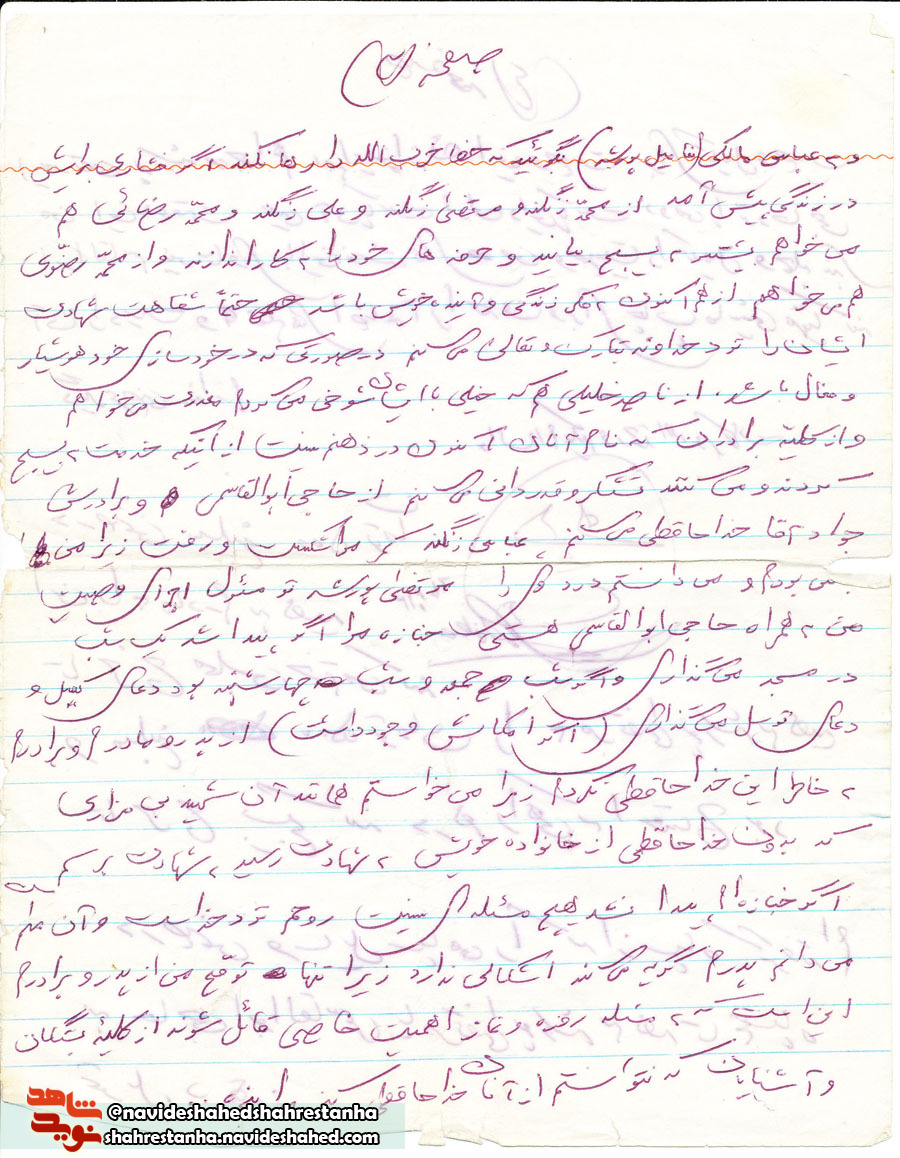 صفحه
و به عباس مالکی (فامیل پورشه) بگوئید که خط حزب الله را رها نکند اگر فشاری برایش
در زندگی پیش آمد از محمد زنگنه و مرتضی زنگنه و علی زنگنه و محمد رضائی هم
می خواهم بیشتر به بسیج بیایند و حرفه های خود را به کار اندازند و از محمد رضوی
هم می خواهم از هم اکنون به فکر زندگی و آینده خویش باشد حتماً شفاعت شهادت
ایشان را نزد خداوند تبارک و تعالی می کنم در صورتی که در خودسازی خود هوشیار
و فعال باشد، از ناصر خلیلی هم که خیلی با ایشان شوخی می کردم معذرت می خواهم
و از کلیه برادران که نام آنان اکنون در ذهنم نیست از اینکه خدمت به بسیج
کردند و می کنند تشکر و قدردانی می کنم از حاجی ابوالقاسمی و برادرش
جواد آقا خداحافظی می کنم، عباس زنگنه کمر مرا شکست و رفت زیرا من
بودم و می دانستم درد وی را مرتضی پورشه تو مسئول اجرای وصیت
من به همراه حاجی ابوالقاسمی هستی جنازه مرا اگر پیدا شد یک شب
در مسجد می گذاری و اگر شب جمعه و شب چهارشنبه بود دعای کمیل و
دعای توسل می گذاری (اگر امکانش وجود داشت) از پدر و مادرم و برادرم
به خاطر این خداحافظی نکردم زیرا می خواستم همانند آن شهید بی مزاری
که بدون خداحافظی از خانواده خویش به شهادت رسید، به شهادت برسم
اگر جنازه ام پیدا نشد هیچ مسئله ای نیست روحم نزد خداست و آن هم
می دانم پدرم گریه می کند اشکالی ندارد زیرا تنها توقع من از پدر و برادرم
این است که به مسئله روزه و نماز اهمیت خاصی قائل شوند از کلیه بستگان
و آشنایان که نتوانستم از آنان خداحافظی کنم
شاهد
نوید
@navideshahedshahrestanha
shahrestanha.navideshahed.com